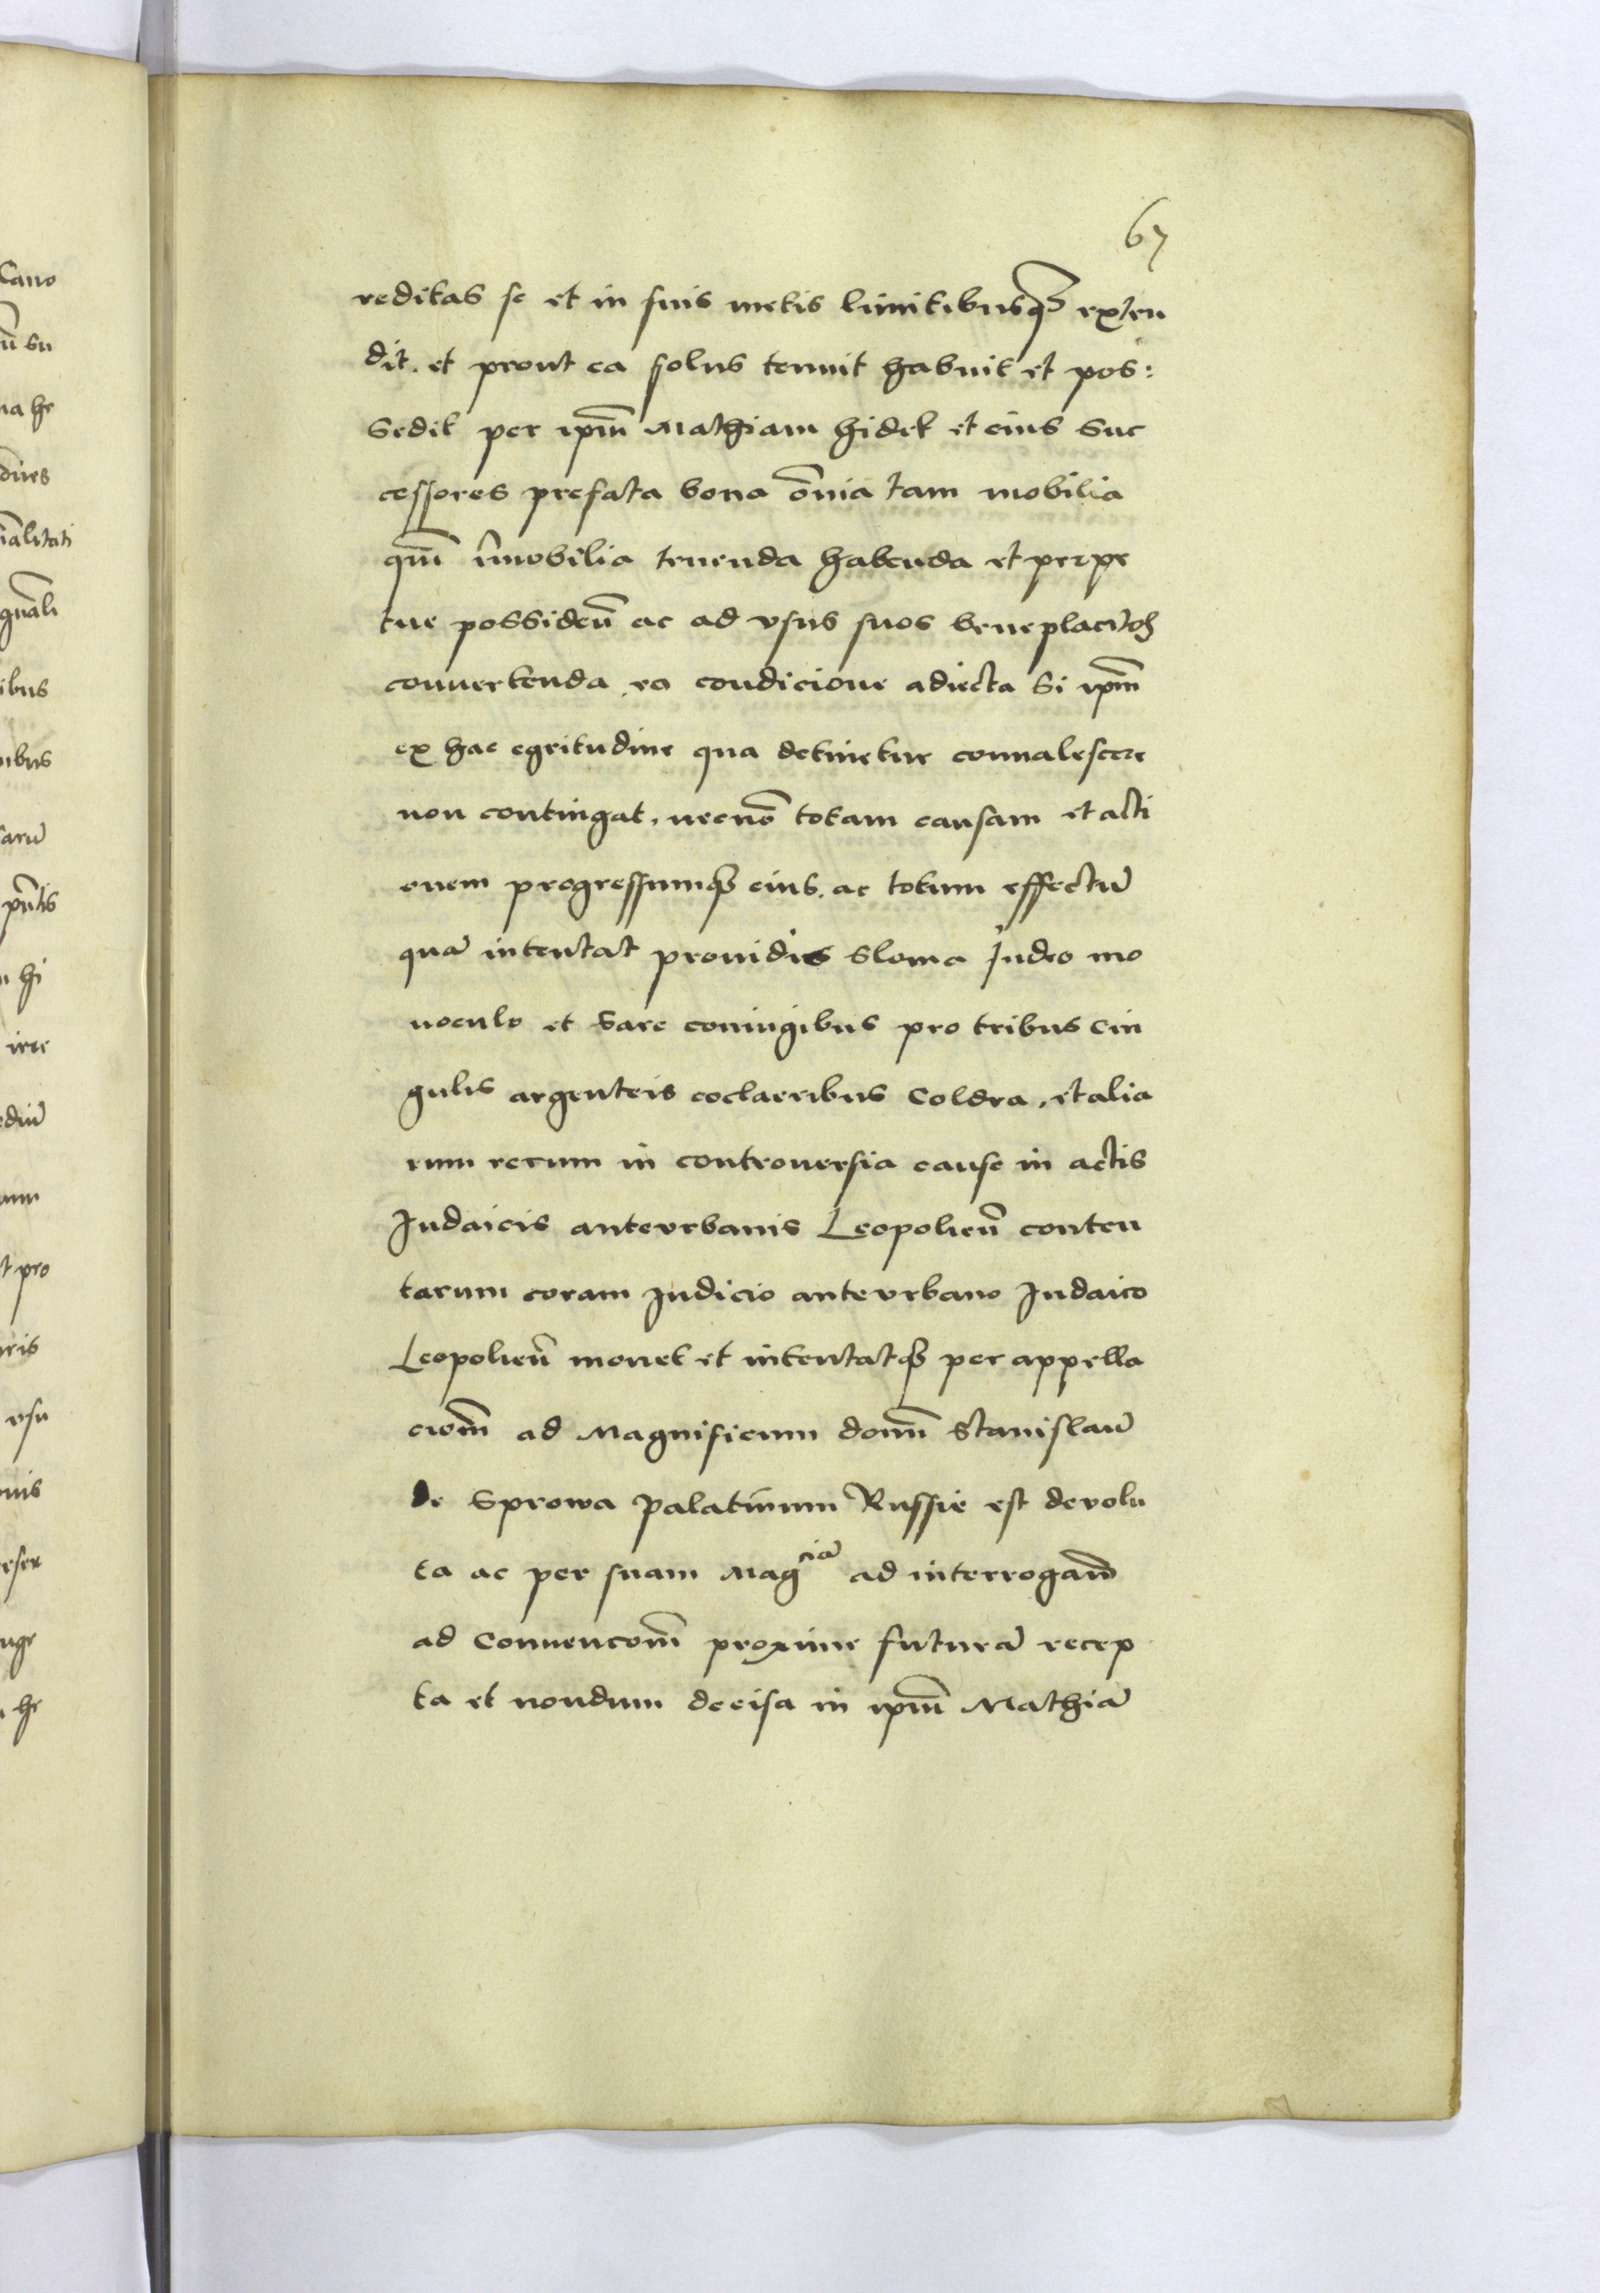 67
reditas se et in suis metis limitibusqꝫ exten
dit. et prout ea solus tenuit habuit et pos:
sedit per ipm̄ Mathiam hidek et eius suc
cessores prefata bona om̄ia tam mobilia
qm̄ im̄obilia tenenda habenda et perpe
tue possidēn ac ad vsus suos beneplacitos
conuertenda ea condicione adiecta Si ipm̄
ex hac egritudine qua detinetur conualescere
non contingat. necnō totam causam et acti
onem progressumqꝫ eius. ac totum effectū
quā intentat prouidis Sloma Judeo mo
noculo et Sare coniugibus pro tribus cin
gulis argenteis coclaeribus Coldra. et alia
rum rerum in controuersia cause in actis
Judaicis antevrbanis Leopolieñ conten
tarum coram Judicio antevrbano Judaico
Leopolieñ mouet et intentatqꝫ per appella
ciom̄ ad Magnificum dom̄ Stanislaū
de Sprowa Palatinum Russie est devolu
ta ac per suam Magciā ad interrogan̄
ad Conuencom̄ proxime futurā recep
ta et nondum decisa in ipm̄ Mathiā